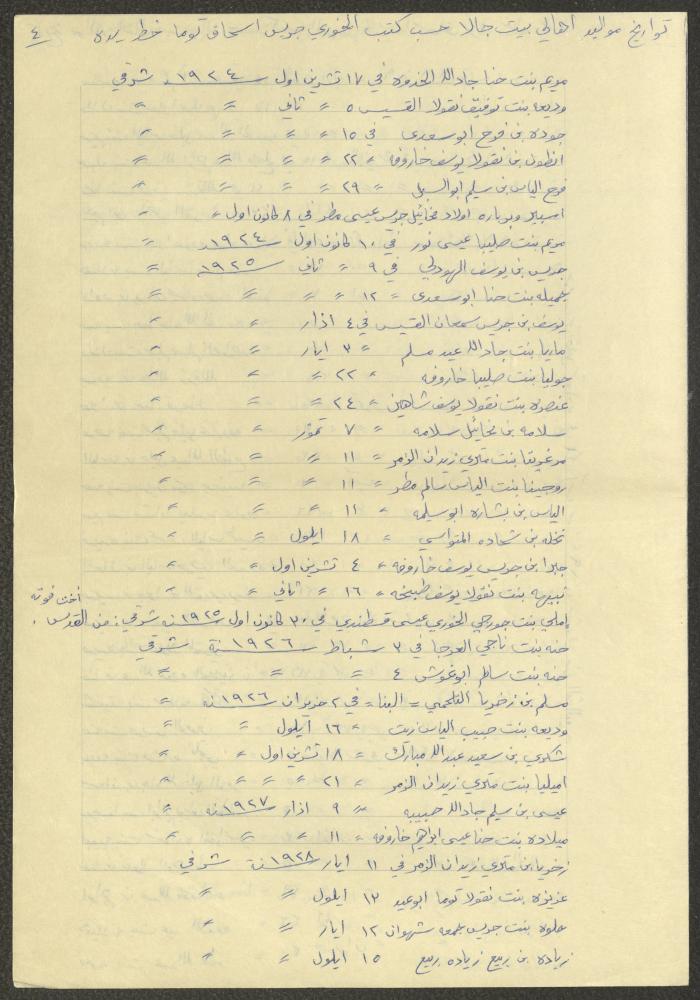 تواريخ مواليد اهالي بيت جالا حسب كتب الخوري جريس اسحاق توما خط يده ٤
مريم بنت حنا جادالله الخدوره في ١٧ تشرين اول ١٩٢٤ شرقي
وديعه بنت توفيق نقولا القسيس ٥ = ثاني = =
جوده بن فرح ابو سعدى في ١٥ = = = =
انطون بن نقولا يوسف خاروفه = ٢٢ = = = =
فرح الياس بن سليم ابوالسبل = ٢٩ = = = =
اسبير وبرباره اولاد مخائيل جريس عيسى مطر في ٨ كانون اول = =
مريم بنت صليبا عيسى نور في ١٠ كانون اول ١٩٢٤ =
جريس بن يوسف الهودلي في ٩ = ثاني ١٩٢٥ =
جميله بنت حنا ابو سعدى = ١٢ = = = =
يوسف بن جريس سمعان القسيس في ٤ اذار = =
ماريا بنت جادالله عيد مسلم = ٣ ايار = =
جوليا بنت صليبا خاروفه = ٢٢ = = =
عنصره بنت نقولا يوسف شاهين = ٢٤ = = =
سلامه بن مخائيل سلامه = ٧ تموز = =
مرغريتا بنت متري زيدان الزمر = ١١ = = =
روجينا بنت الياس سالم مطر = ١١ = = =
الياس بن بشاره ابو سليمه = ١١ = = =
نخله بن شحاده المتواسي = ١٨ ايلول = =
جبرا بن جريس يوسف خاروفه = ٤ تشرين اول = =
نبيهه بنت نقولا يوسف طبيخه = ١٦ = ثاني = =
املي بنت جورجي الخوري عيسى قسطندي في ٣٠ كانون اول ١٩٢٥ نه شرقي : من القدس . اخت فوته
حنه بنت ناجي العرجا في ٣ شباط ١٩٢٦ نة شرقي
حنه بنت سالم ابو غوش ٤ = = =
مسلم بن زخريا التلحمي = البناء = في ٢ حزيران ١٩٢٦ نه =
وديعه بنت حبيب الياس زيت = ١٦ ايلول = =
شكري بن سعيد عبدالله مبارك = ١٨ تشرين اول = =
اميليا بنت متري زيدان الزمر = ٢١ = = = =
عيسى بن سليم جادالله حبيبه = ٩ اذار ١٩٢٧ نه =
ميلاده بنت حنا عيسى ابراهيم خاروفه = ١١ = = =
زخريا بن متري زيدان الزمر في ١١ ايار ١٩٢٨ نة شرقي
عزيزه بنت نقولا توما ابو عيد ١٣ ايلول = =
حلوه بنت جريس جمعه شهوان ١٢ ايار = =
زياده بن ربيع زياده ربيع ١٥ ايلول = =